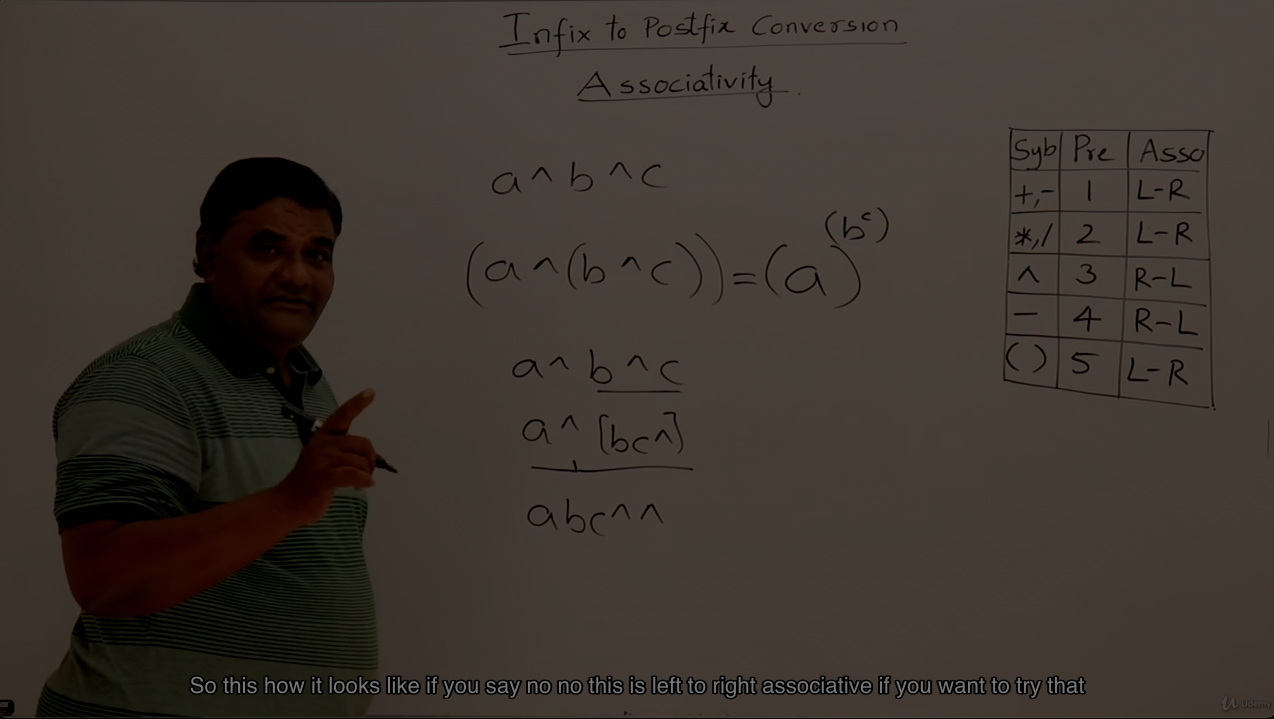 Infix to Postfix Conversion
Associativity.
a ^ b ^ c
(a ^ (b ^ c)) = (a)^(b^c)
a ^ b ^ c
a ^ [bc^]
abc^^
Syb Pre Asso
+,- 1 L-R
*,/ 2 L-R
^ 3 R-L
- 4 R-L
( ) 5 L-R
So this how it looks like if you say no no this is left to right associative if you want to try that
Udemy